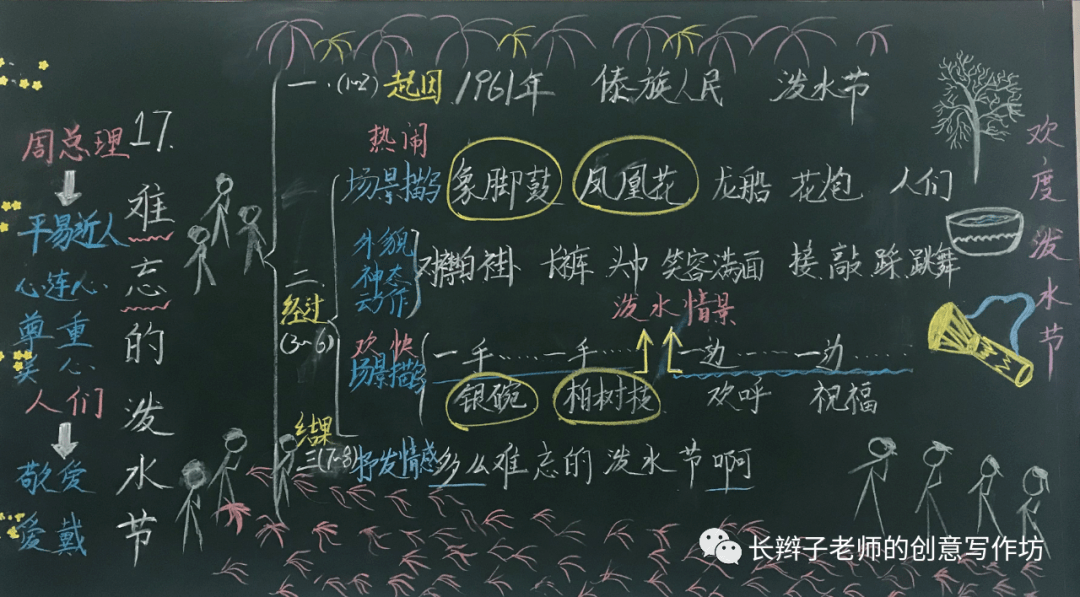 周总理
平易近人
心连心
尊重
关心
人们
敬爱
爱戴
17.
难忘的泼水节
一.(1~2) 起因 1961年 傣族人民 泼水节
二.
经过
(3~6)
热闹
场景描写 象脚鼓 凤凰花 龙船 花炮 人们
外貌
神态
动作
白褂 头巾 笑容满面 接 敲 踩 跳舞
泼水情景
欢快
场景描写
一手……一手…… 一边……一边……
银碗 柏树枝 欢呼 祝福
结果
三(7~8) 抒发情感 多么难忘的泼水节啊
欢度泼水节
长辫子老师的创意写作坊